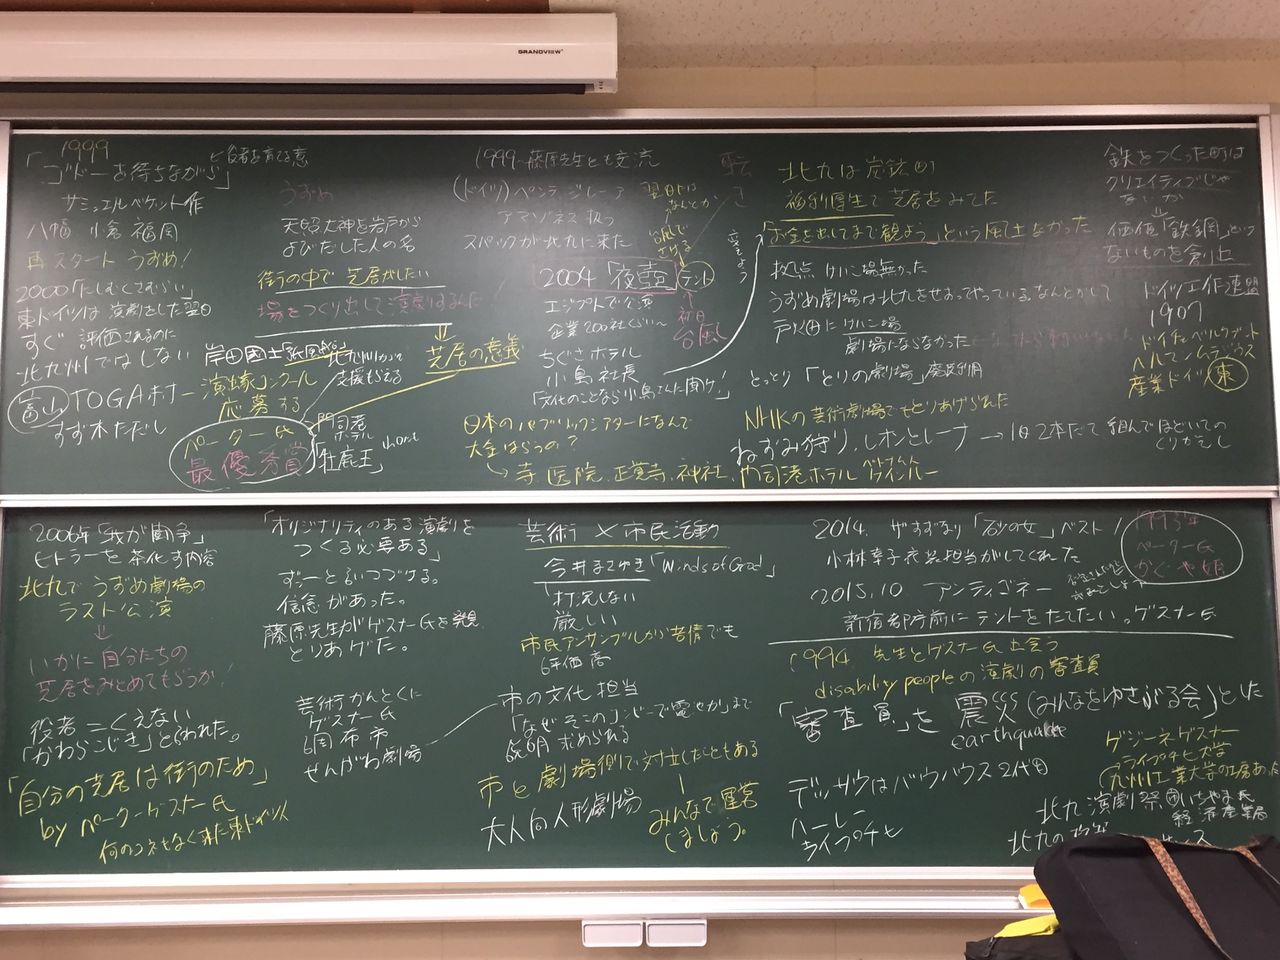 GRANDVIEW
1999
「ゴドーを待ちながら」
サミュエルベケット作
八幡 小倉 福岡
再スタート うずめ!
東ドイツは 演劇をした翌日
すぐ 評価されるのに
北九州ではしない
富山 TOGA村
演劇コンクール
応募する
ペーター氏
最優秀賞
うずめ
天照大神を岩戸から
よびだした人の名
街の中で 芝居がしたい
場をつくり出して演劇するんだ
芝居の意義
岸田國士「紙風船」
北九州市から
支援もらえる
門司港
ホテル
「牡鹿王」
1999〜藤原先生とも交流
(ドイツ)ペンテジレーア
アマゾネス 扱う
スパックが北九に来た
2004「夜壺」テント
初日
台風
エジプトで公演
企業200社くらい〜
ちぐさホテル
小島社長
「文化のことなら小島さんに聞け」
日本のパブリックシアターになんで
大金はらうの?
寺 医院、正覚寺、神社、門司港ホテル
北九は炭鉱の町
福利厚生で芝居をみてた
「お金を出してまで観よう」という風土なかった
拠点 けいこ場無かった
うずめ劇場は北九をせおってやっている、なんとかして
戸畑にけいこ場
劇場にならなかった
とっとり「とりの劇場」廃校利用
NHKの芸術劇場でもとりあげられた
ねずみ狩り、レオンとレーナ → 1日2本だて 組んではどいての
くりかえし
鉄をつくった町は
クリエイティブじゃ
ないか
価値「鉄鋼」という
ないものを創出
ドイツ工作連盟
1907
ドイチェベルクブント
ヘルマンムテジウス
産業ドイツ 東
2006年「我が闘争」
ヒトラーを茶化す内容
北九でうずめ劇場の
ラスト公演
いかに自分たちの
芝居をみとめてもらうか!
役者 = くえない
「かわらこじき」と言われた。
「自分の芝居は街のため」
by ペーターゲスナー氏
何のコネもなく来た東ドイツ人
「オリジナリティのある演劇を
つくる必要ある」
ずーっと言いつづける。
信念があった。
藤原先生がゲスナー氏を発見、
とりあげた。
芸術かんとくに
ゲスナー氏
調布市
せんがわ劇場
芸術×市民活動
今井まさゆき「Winds of God」
打況しない
厳しい
市民アンサンブルしか苦情でも
評価高
市の文化担当
「なぜそこのコンビニで電池か」まで
説明 求められる
市と劇場側で対立したこともある
みんなで運営
しましょう。
大人向人形劇場
2014. ザすずなり「砂の女」ベスト1
小林幸子衣装担当がしてくれた
2015.10 アンティゴネー
新宿都庁前にテントをたてたい。ゲスナー氏
ペーター氏
かぐや姫
1994 先生とゲスナー氏出会う
disability peopleの演劇の審査員
「審査員」を 震災(みんなをゆさぶる会)とした
earthquake
デッサウはバウハウス2代目
ハーレー
ライプチヒ
ゲジーネゲスナー
ライプチヒ大学
(九州工業大学の工房あった
北九演劇祭
経済産業局